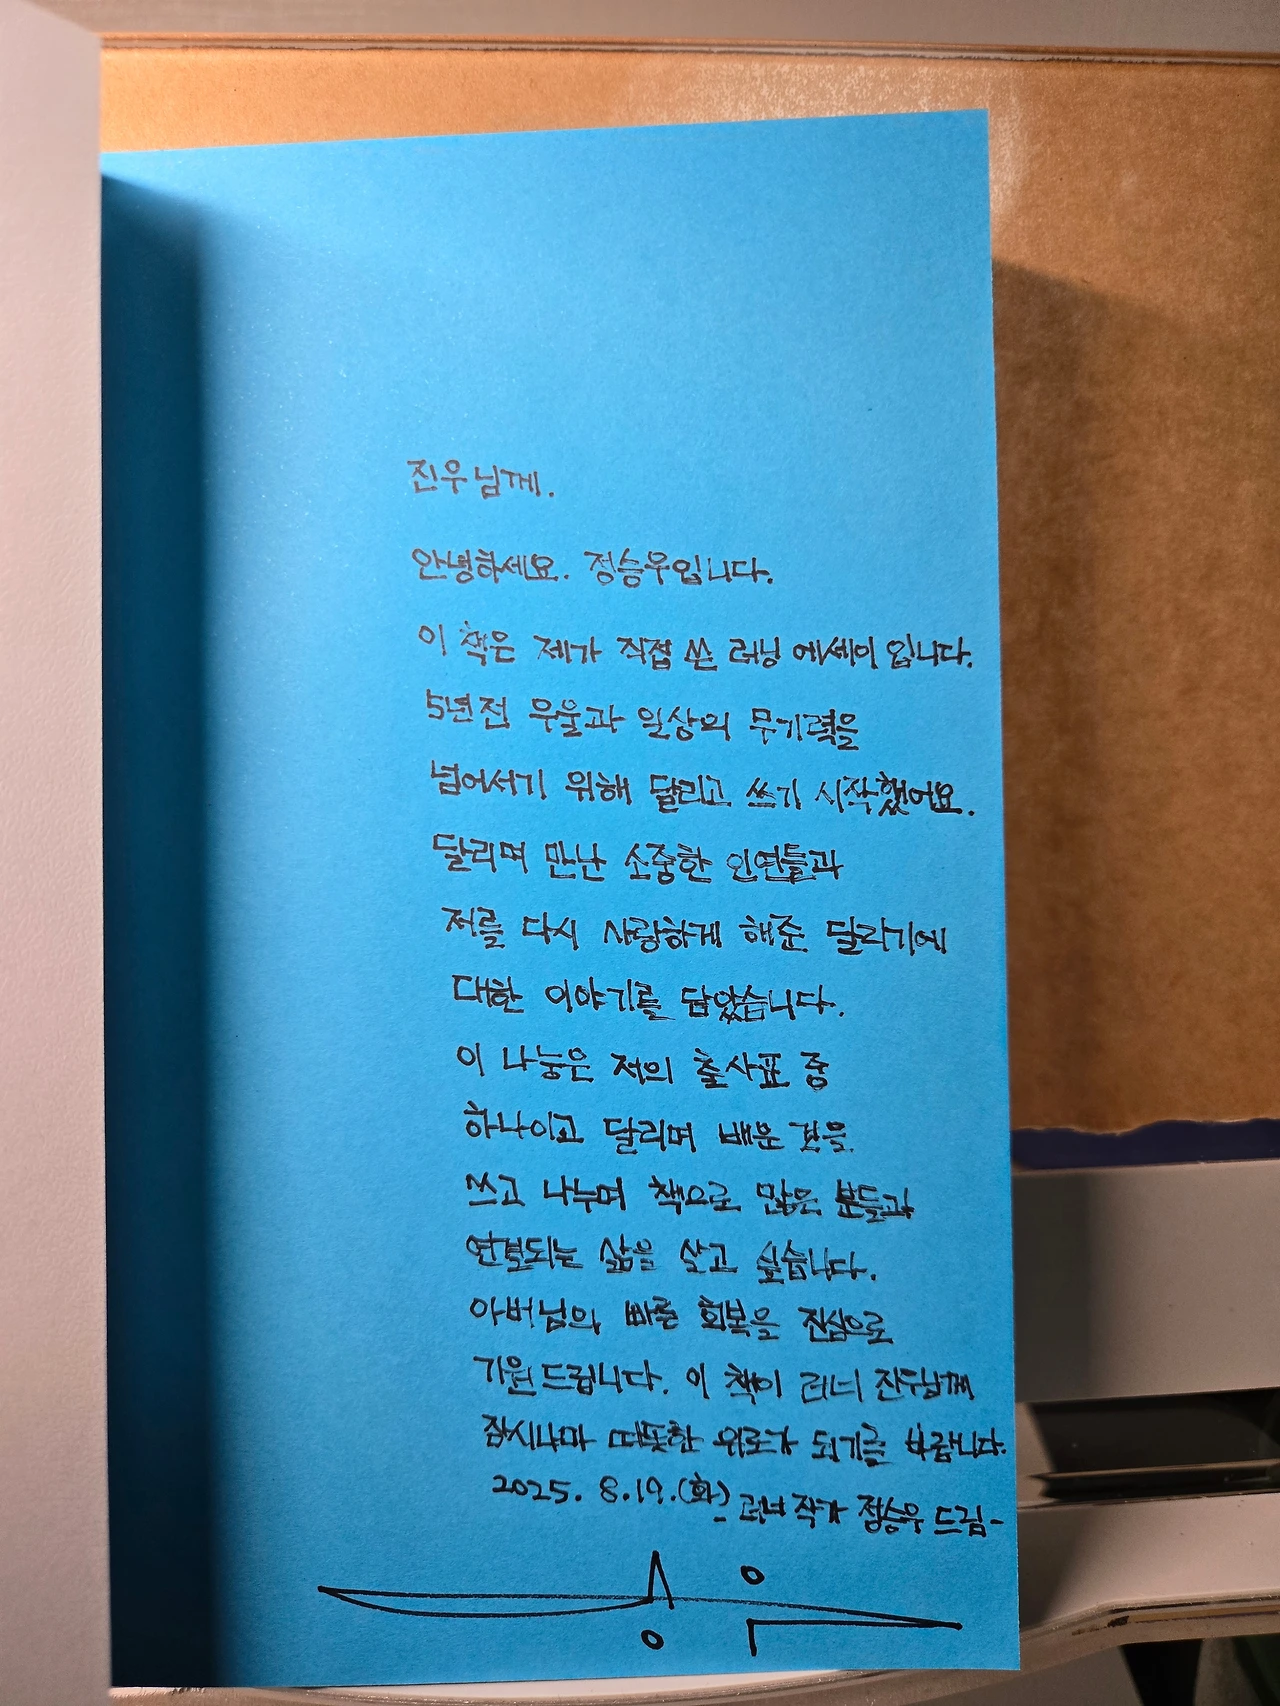 진우님께.
안녕하세요. 정승우입니다.
이 책은 제가 직접 쓴 러닝 에세이 입니다.
5년전 우울과 일상의 무기력을
넘어서기 위해 달리고 쓰기 시작했어요.
달리며 만난 소중한 인연들과
저를 다시 사랑하게 해준 달리기에
대한 이야기를 담았습니다.
이 나눔은 저의 출사표 중
하나이고 달리며 배운 것을
쓰고 나누며 책으로 많은 분들과
연결되는 삶을 살고 싶습니다.
아버님의 빠른 회복을 진심으로
기원드립니다. 이 책이 러너 진우님께
잠시나마 따뜻한 위로가 되기를 바랍니다.
2025. 8.19.(화) - 러너 작가 정승우 드림-